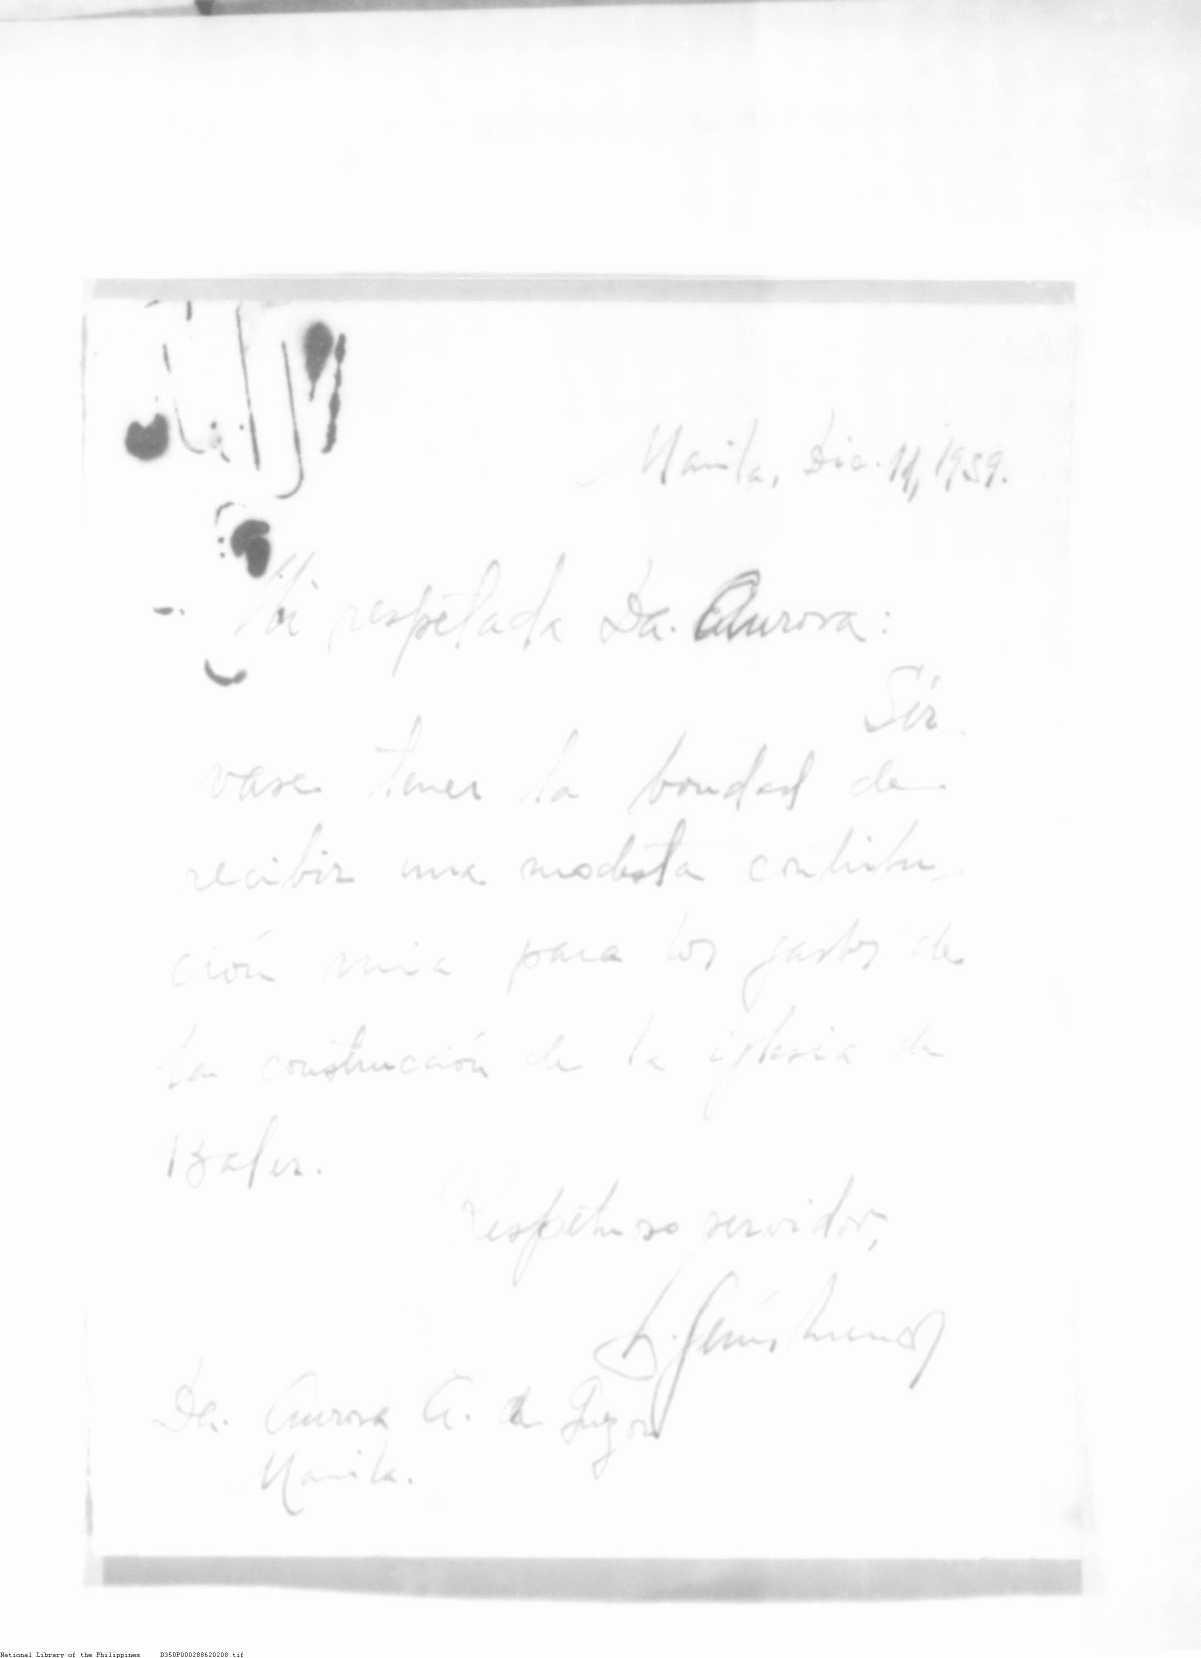 Manila, Dic. 11, 1939.
Mi respetada Da. Aurora:
Sír
vase tener la bondad de
recibir una modesta contribu
ción mia para los gastos de
la construcción de la iglesia de
Baler.
Respetuoso servidor,
Da. Aurora A. de Quezon
Manila.
National Library of the Philippines D350P000288620208.tif